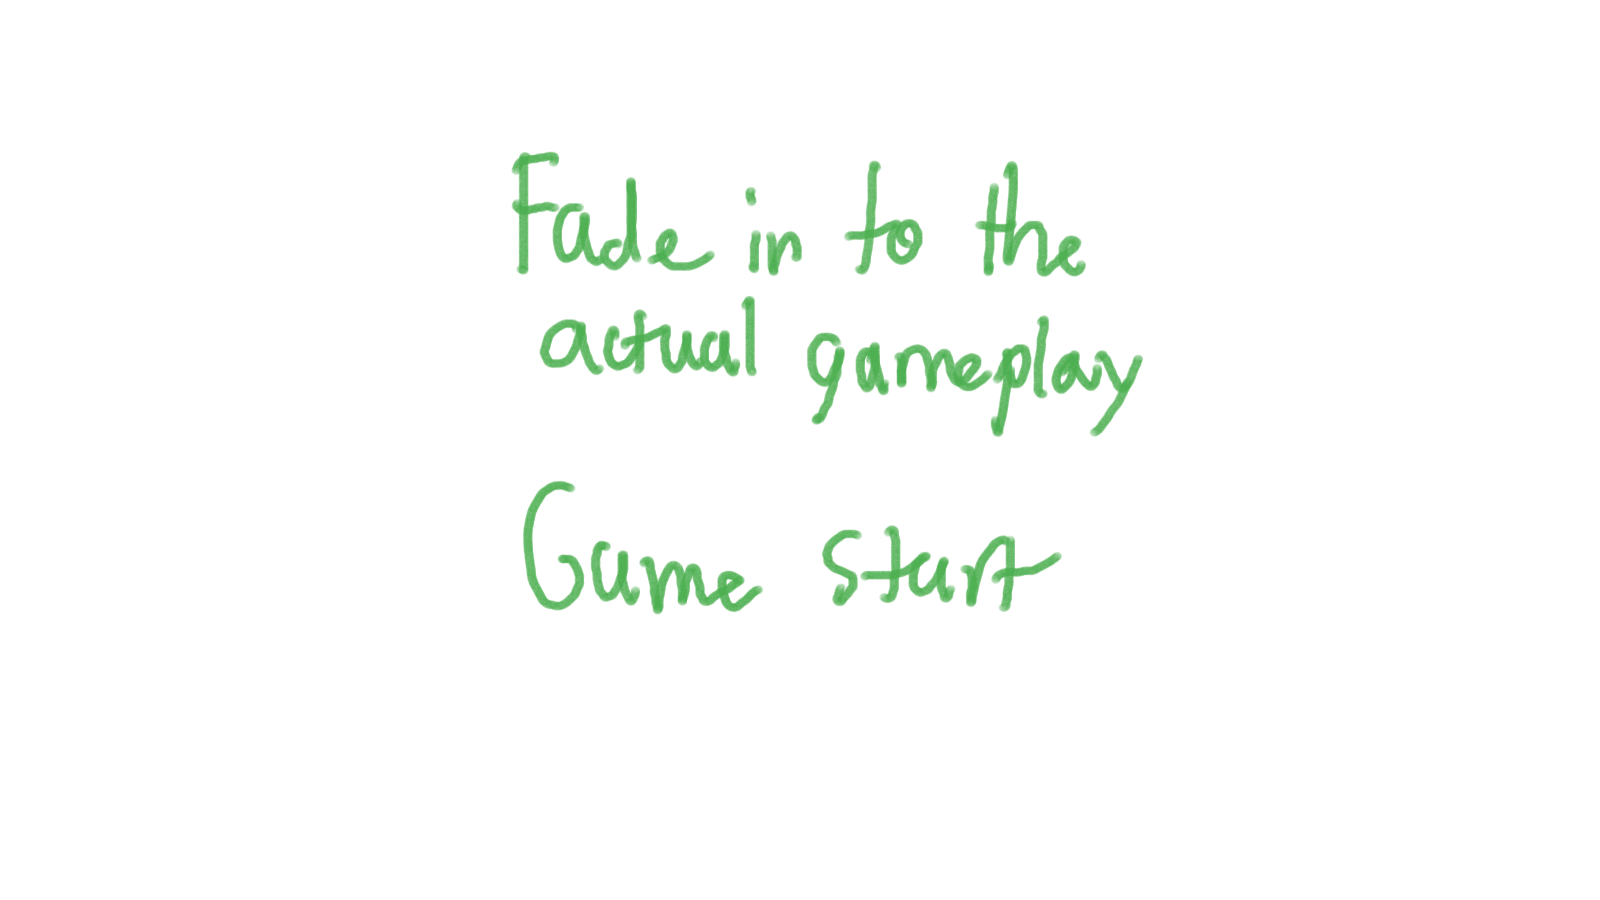 Fade in to the
actual gameplay
Game start